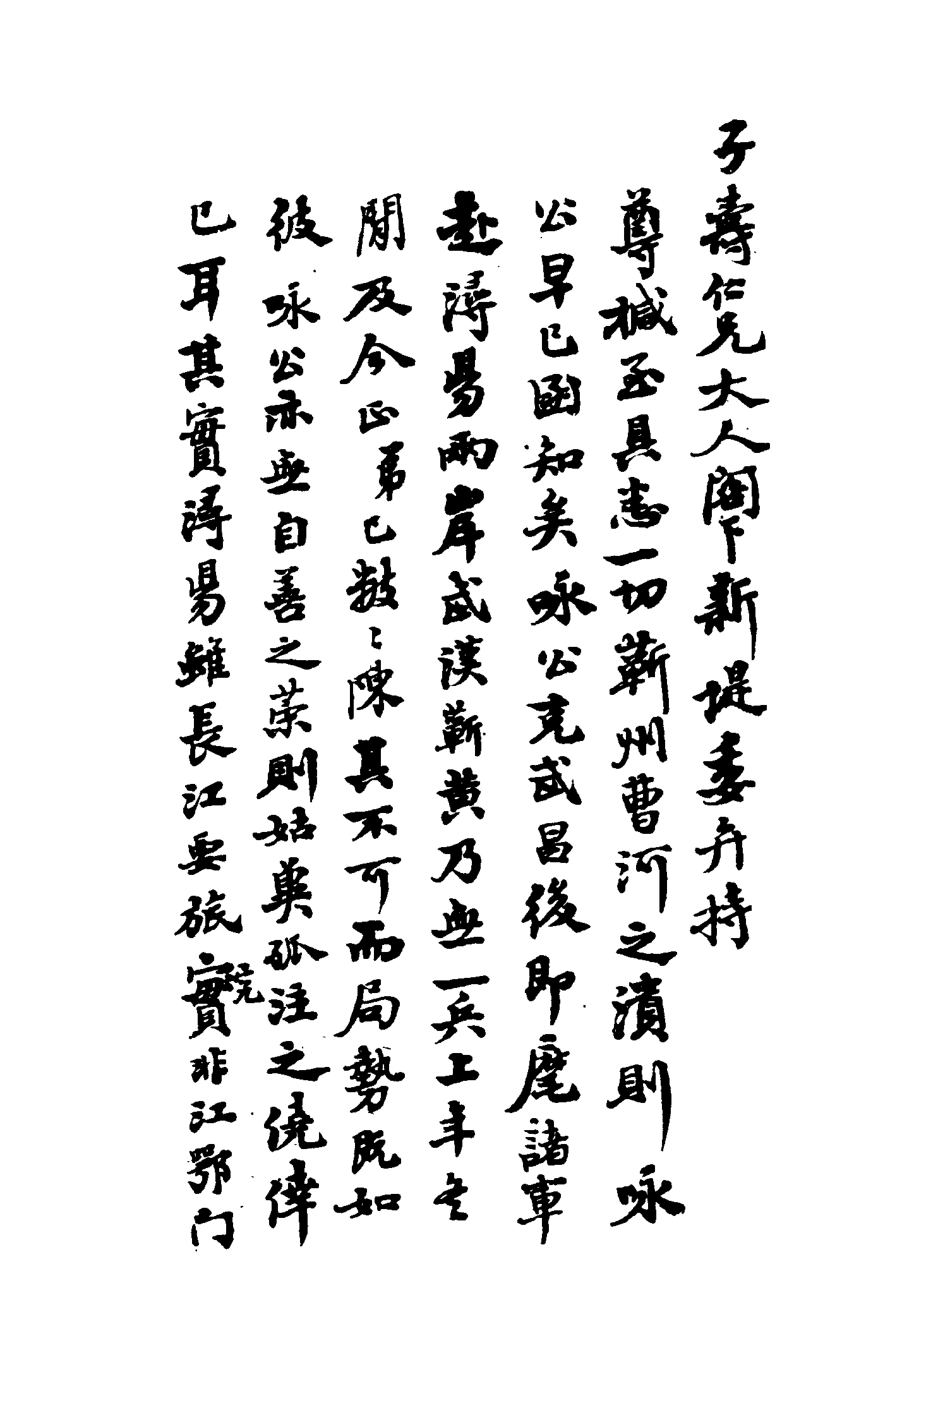 子壽仁兄大人閣下新堤委弁持
尊椷至具悉一切蘄州曹河之潰則咏
公早已圖知矣咏公克武昌後即麾諸軍
赴潯昜兩岸武漢蘄黄乃無一兵上年冬
閒及今正弟已數〻陳其不可而局勢既如
彼咏公亦無自善之策則姑冀孤注之僥倖
已耳其實潯昜雖長江要旅實非江鄂門